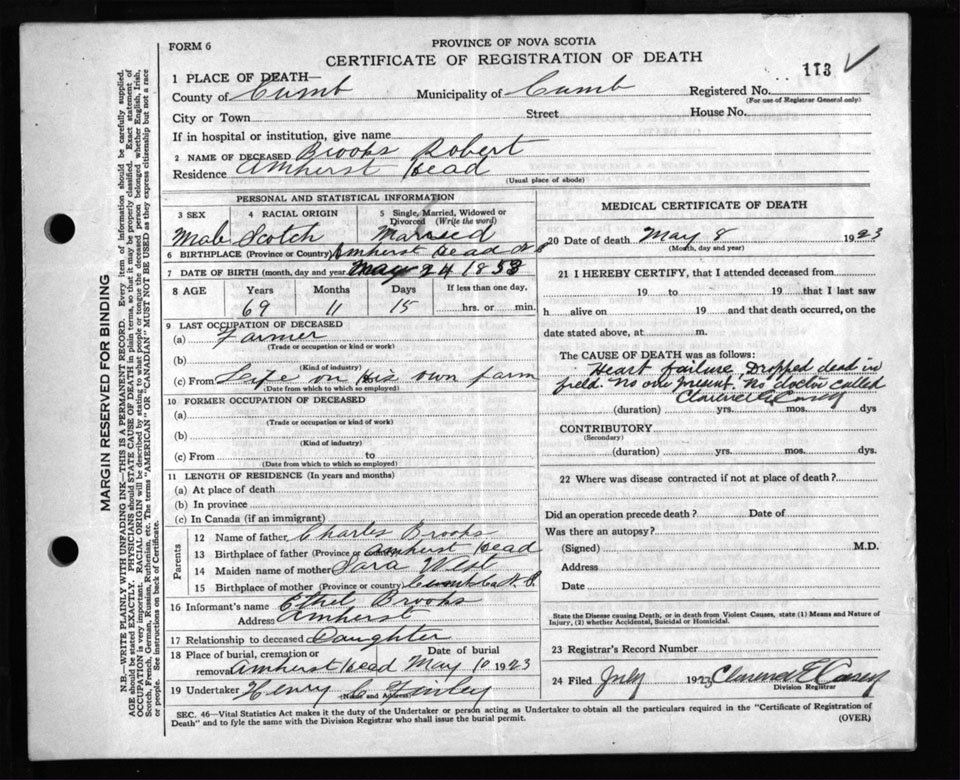 FORM 6
PROVINCE OF NOVA SCOTIA
CERTIFICATE OF REGISTRATION OF DEATH
113
1 PLACE OF DEATH—
County of Cumb Municipality of Cumb Registered No.
(For use of Registrar General only)
City or Town Street House No.
If in hospital or institution, give name
2 NAME OF DECEASED Brooks Robert
Residence Amherst Head
(Usual place of abode)
PERSONAL AND STATISTICAL INFORMATION
3 SEX 4 RACIAL ORIGIN 5 Single, Married, Widowed or Divorced (Write the word)
Male Scotch Married
6 BIRTHPLACE (Province or Country) Amherst Head N S
7 DATE OF BIRTH (month, day and year) May 24 1853
8 AGE Years Months Days If less than one day,
69 11 15 hrs. or min.
9 LAST OCCUPATION OF DECEASED
(a) Farmer
(Trade or occupation or kind of work)
(b)
(Kind of industry)
(c) From Life on His own farm
(Date from which to which so employed)
10 FORMER OCCUPATION OF DECEASED
(a)
(Trade or occupation or kind of work)
(b)
(Kind of industry)
(c) From to
(Date from which to which so employed)
11 LENGTH OF RESIDENCE (In years and months)
(a) At place of death
(b) In province
(c) In Canada (if an immigrant)
Parents
12 Name of father Charles Brooks
13 Birthplace of father (Province or country) Amherst Head
14 Maiden name of mother Sara West
15 Birthplace of mother (Province or country) N. S.
16 Informant's name Ethel Brooks
Address Amherst
17 Relationship to deceased Daughter
18 Place of burial, cremation or removal Date of burial
Amherst Head May 10 1923
19 Undertaker Henry C Finley
(Name and Address)
MEDICAL CERTIFICATE OF DEATH
20 Date of death May 8 1923
(Month, day and year)
21 I HEREBY CERTIFY, that I attended deceased from
19 to 19 that I last saw
h alive on 19 and that death occurred, on the
date stated above, at m.
The CAUSE OF DEATH was as follows:
Heart failure, Dropped dead in
field. No one present. No doctor called
Clarence E Casey
(duration) yrs. mos. dys
CONTRIBUTORY
(Secondary)
(duration) yrs. mos. dys.
22 Where was disease contracted if not at place of death?
Did an operation precede death? Date of
Was there an autopsy?
(Signed) M.D.
Address
Date
State the Disease causing Death, or in death from Violent Causes, state (1) Means and Nature of
Injury, (2) whether Accidental, Suicidal or Homicidal.
23 Registrar's Record Number
24 Filed July 1923 Clarence E Casey
Division Registrar
SEC. 46—Vital Statistics Act makes it the duty of the Undertaker or person acting as Undertaker to obtain all the particulars required in the "Certificate of Registration of
Death" and to fyle the same with the Division Registrar who shall issue the burial permit.
(OVER)
MARGIN RESERVED FOR BINDING
N.B.—WRITE PLAINLY WITH UNFADING INK—THIS IS A PERMANENT RECORD. Every item of information should be carefully supplied.
AGE should be stated EXACTLY. PHYSICIANS should STATE CAUSE OF DEATH in plain terms, so that it may be properly classified. Exact statement of
OCCUPATION is very important. RACIAL ORIGIN will be described by stating to what people or tongue the deceased person belonged whether English, Irish,
Scotch, French, German, Russian, Ruthenian, etc. The terms "AMERICAN" OR "CANADIAN" MUST NOT BE USED as they express citizenship but not a race
or people. See instructions on back of Certificate.